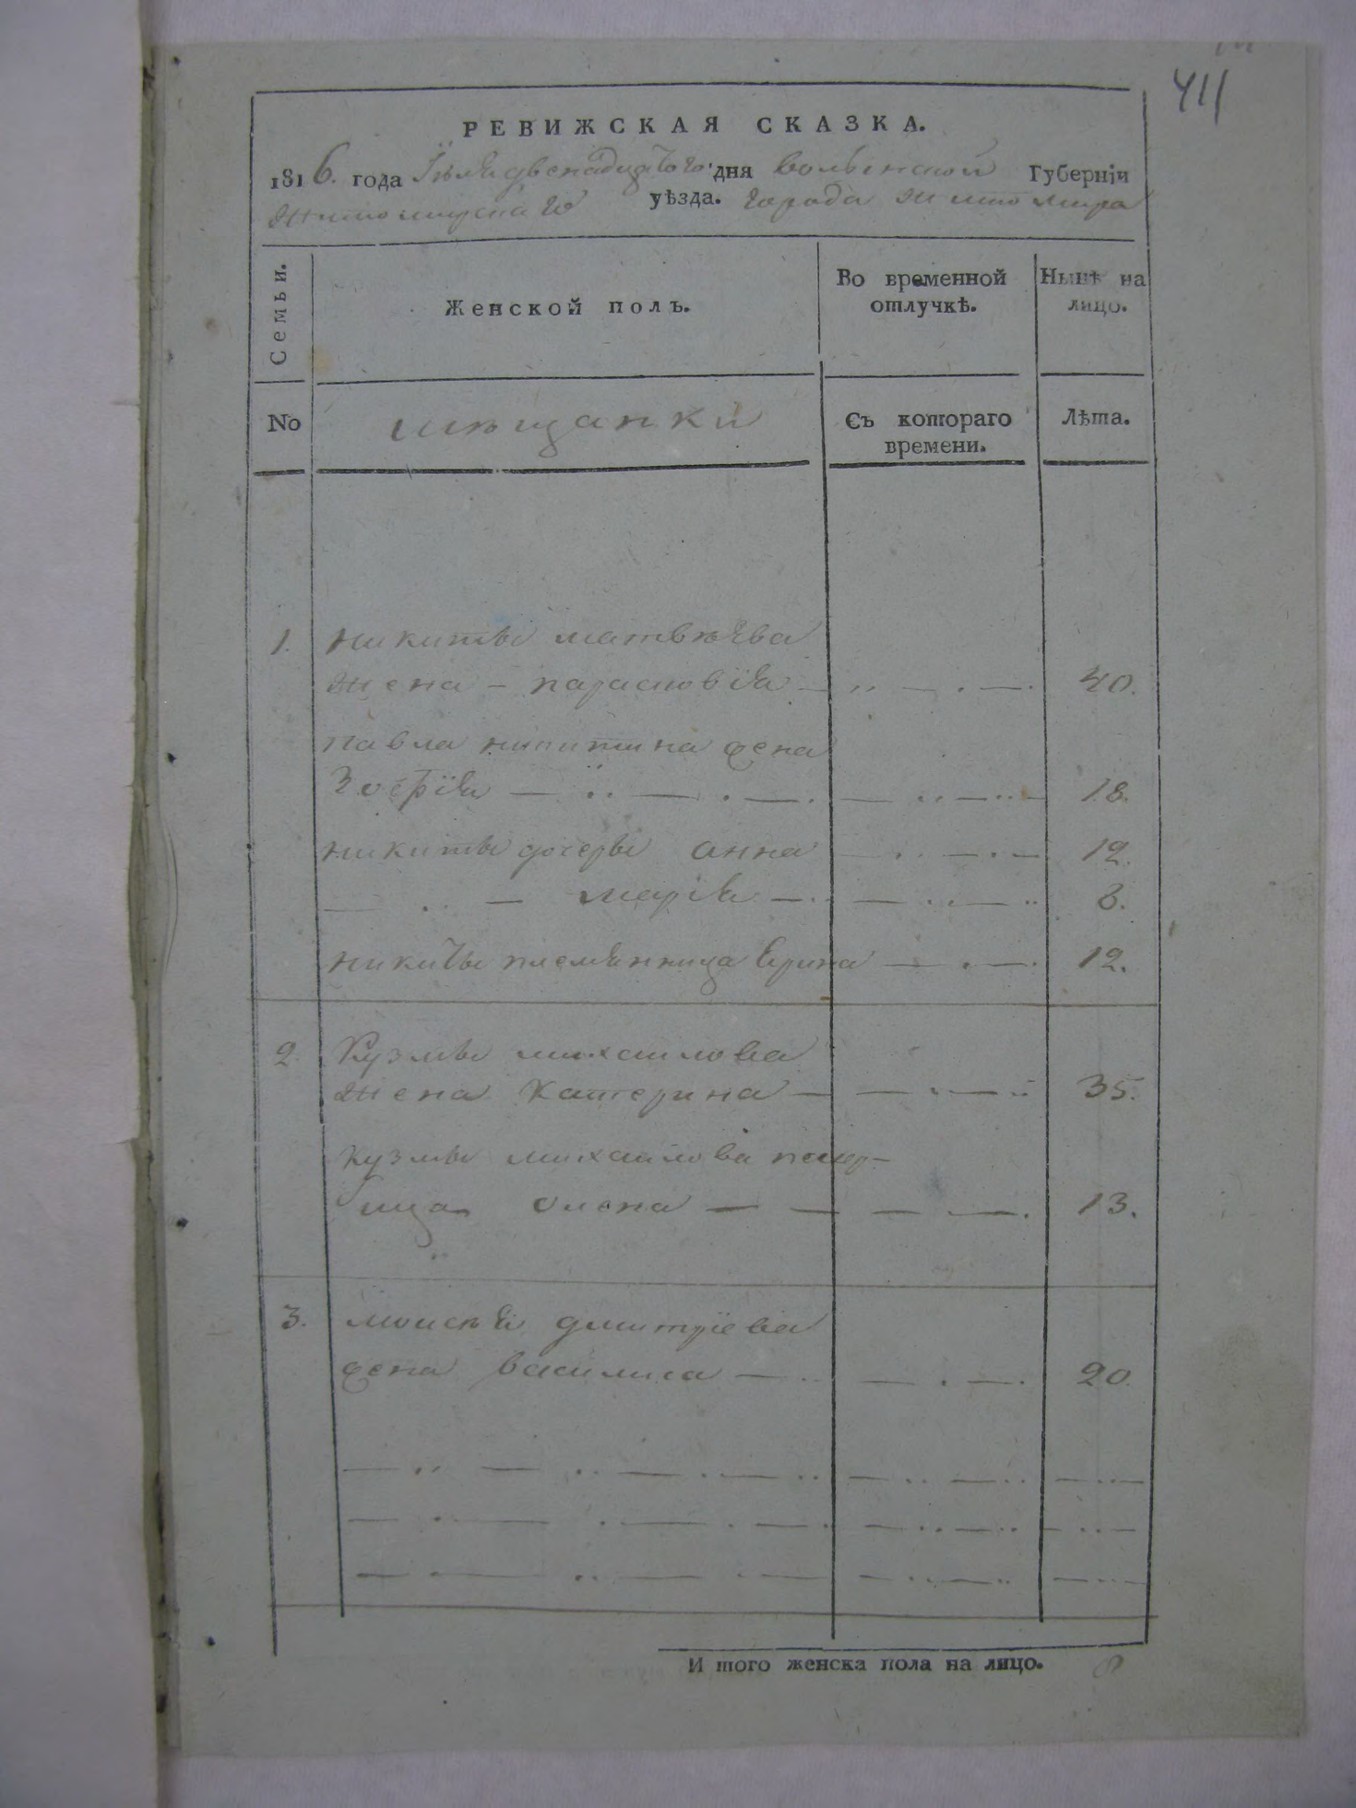 411
РЕВИЖСКАЯ СКАЗКА.
1816. года Іюля двенадцатого дня волынской Губерніи
житомирскаго уѣзда. города житомира
Семьи.
Женской полъ.
Во временной отлучкѣ.
Нынѣ на лицо.
No
мещанки
Съ котораго времени.
Лѣта.
1. никиты матвѣева
жена – парасковія — 40.
павла никитина жена
Зофія — 18.
никиты дочеры анна — 12.
— марія — 8.
никиты племянница Ерина — 12.
2. Кузмы михаилова
жена Катерина — 35.
кузмы михаилова
олена — 13.
3. моисѣя дмитріева
жена василиса — 20
И того женска пола на лицо. 8